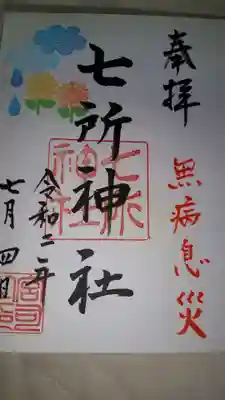 奉拝
無病息災
七所神社
七所神社
令和二年
七月四日